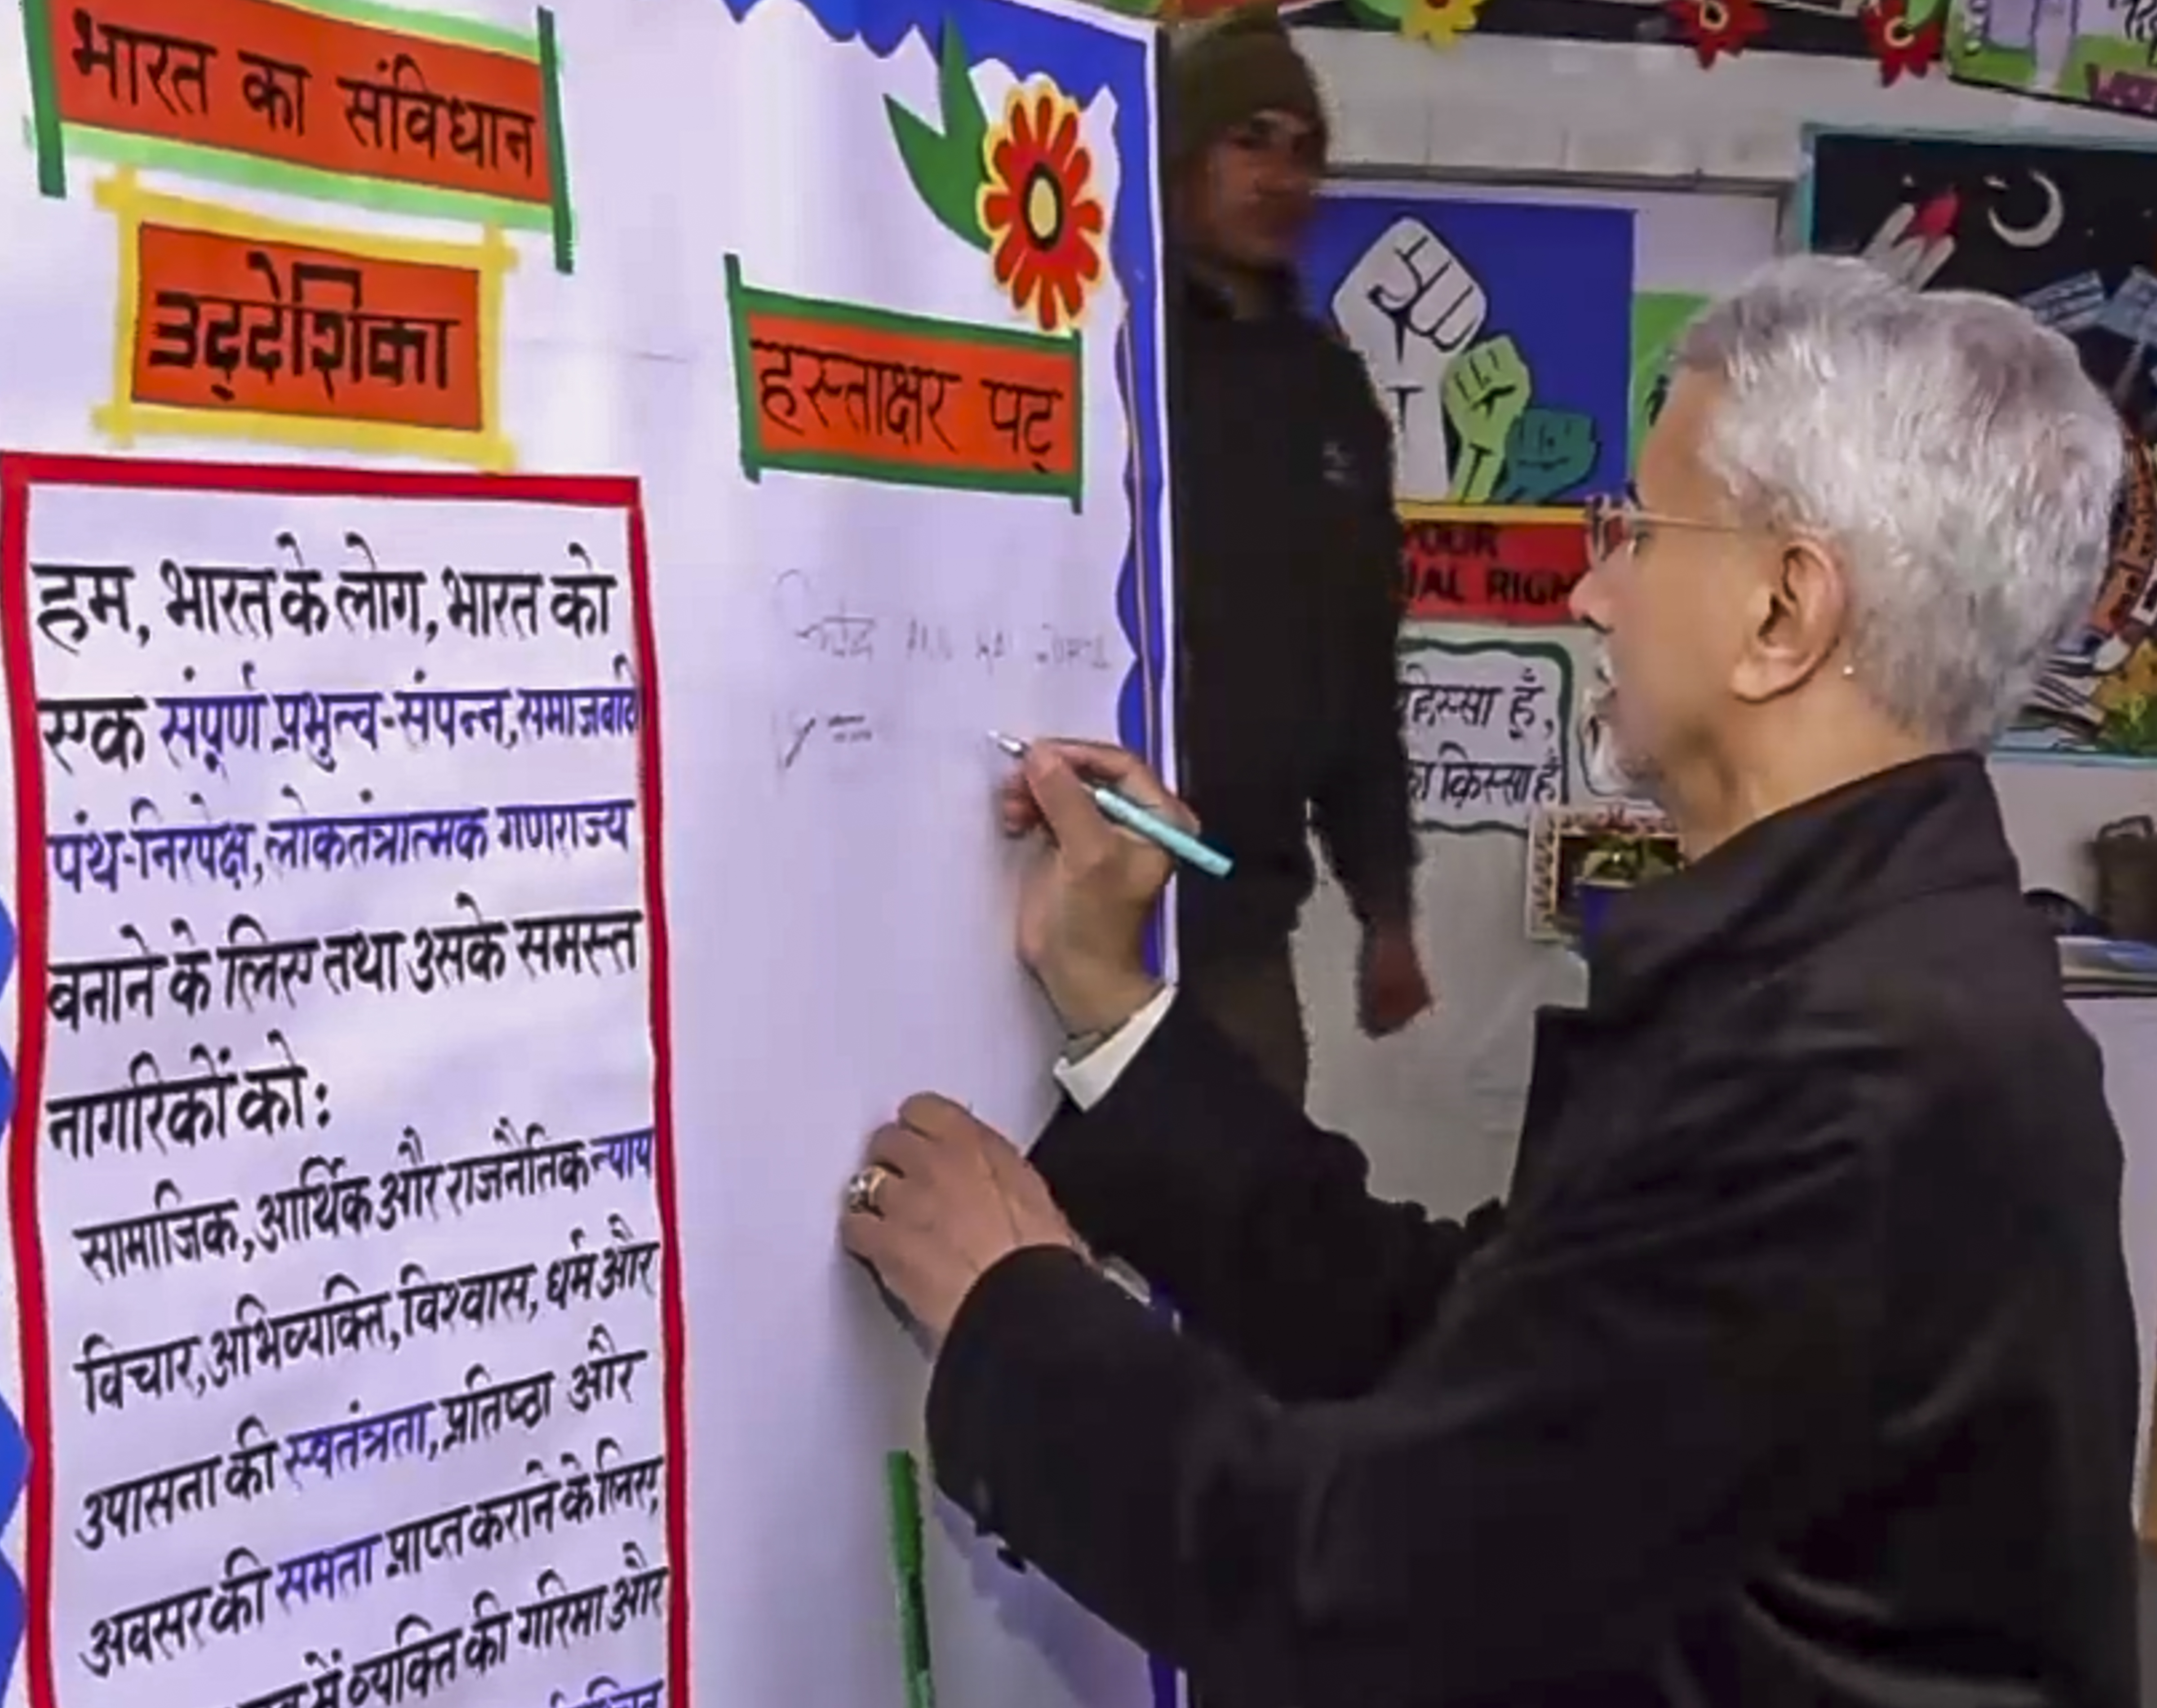 भारत का संविधान
उद्देशिका
हस्ताक्षर पट्
हम, भारत के लोग, भारत को
एक संपूर्ण प्रभुत्व-संपन्न, समाजवादी
पंथ-निरपेक्ष, लोकतंत्रात्मक गणराज्य
बनाने के लिए तथा उसके समस्त
नागरिकों को:
सामाजिक, आर्थिक और राजनैतिक न्याय
विचार, अभिव्यक्ति, विश्वास, धर्म और
उपासना की स्वतंत्रता, प्रतिष्ठा और
अवसर की समता प्राप्त कराने के लिए,
में व्यक्ति की गरिमा और
हिस्सा हूँ,
क़िस्सा हूँ